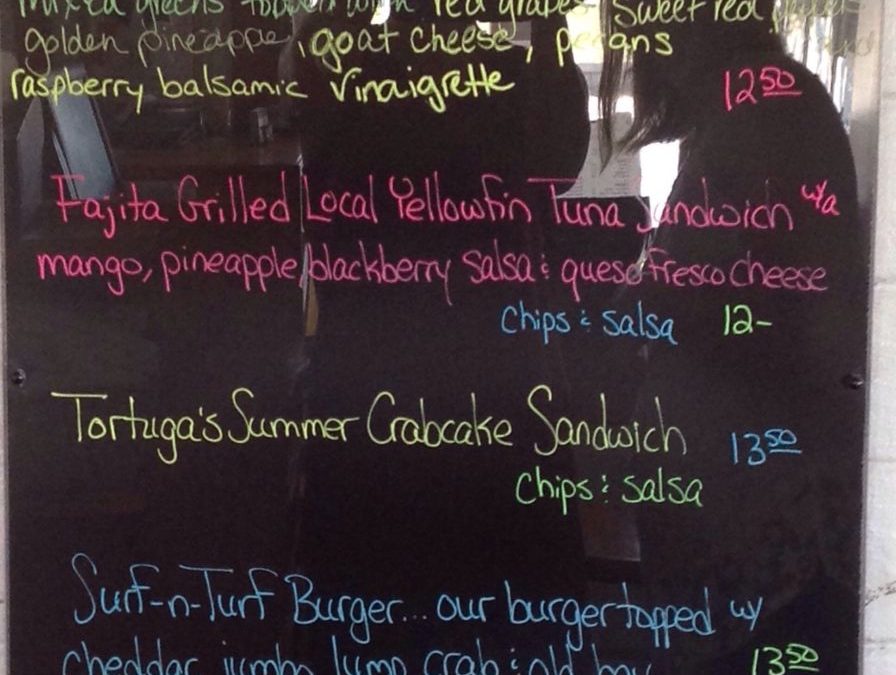 mixed greens topped with red grapes sweet red
golden pineapple, goat cheese, pecans
raspberry balsamic vinaigrette 12 50
Fajita Grilled Local Yellowfin Tuna Sandwich w/a
mango, pineapple, blackberry salsa & queso fresco cheese
chips & salsa 12-
Tortuga's Summer Crabcake Sandwich 13 50
chips & salsa
Surf-n-Turf Burger... our burger topped w/
cheddar jumbo lump crab & old bay 13 50